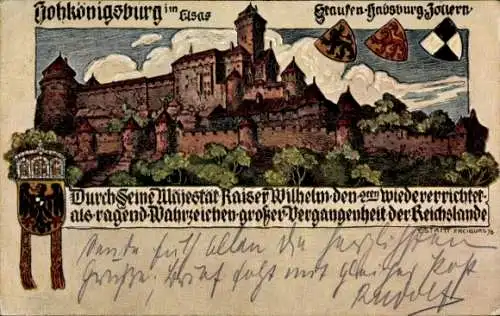 Hohkönigsburg im Elsas
Staufen-Habsburg-Zollern
Durch Seine Majestät Kaiser Wilhelm den 2ten wiedererrichtet
als ragend Wahrzeichen großer Vergangenheit der Reichslande
FREIBURG i/B
Heute Euch allen die herzlichsten
Grüße. Brief folgt mit gleicher Post
Rudolf